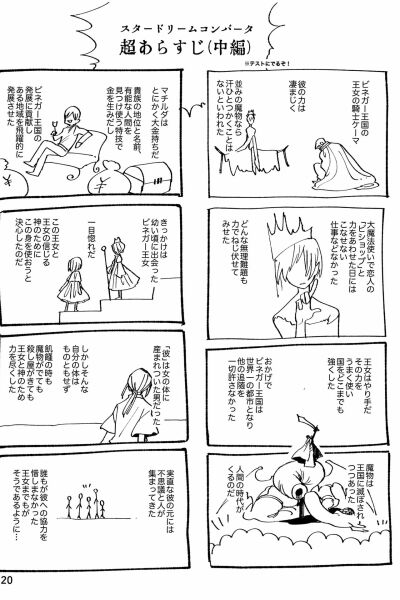 スタードリームコンバータ
超あらすじ(中編)
※テストにでるぞ!
ビネガー王国の
王女の騎士ケーマ
彼の力は
凄まじく
並みの魔物なら
汗ひとつかくことは
ないといわれた
大魔法使いで恋人の
「ビショップ」と
力をあわせた日には
こなせない
仕事などなかった
どんな無理難題も
力でねじ伏せて
みせた
王女はやり手だ
その力を
うまく使い
国をどこまでも
強くした
おかげで
ビネガー王国は
世界一の都市となり
他の追随を
一切許さなかった
魔物は
王国に滅ぼされ
つつあった
人間の時代が
くるのだ
マチルダは
とにかく大金持ちだ
貴族の地位と名前、
有能な人間を
見つけ使う特技で
金を生みだし
ビネガー王国の
発展に貢献し
ある地域を飛躍的に
発展させた
きっかけは
幼い頃に出会った
ビネガー王女
一目惚れだ
この王女と
王女の信じる
神のために
この身を使おうと
決心したのだ
「彼」は女の体に
産まれついた男だった
しかしそんな
自分の体は
ものともせず
飢饉の時も
魔物がでても
殺し屋がきても
王女と神のため
力を尽くした
実直な彼の元には
不思議と人が
集まってきた
誰もが彼への協力を
惜しまなかった
王女までもが
そうであるように…
20